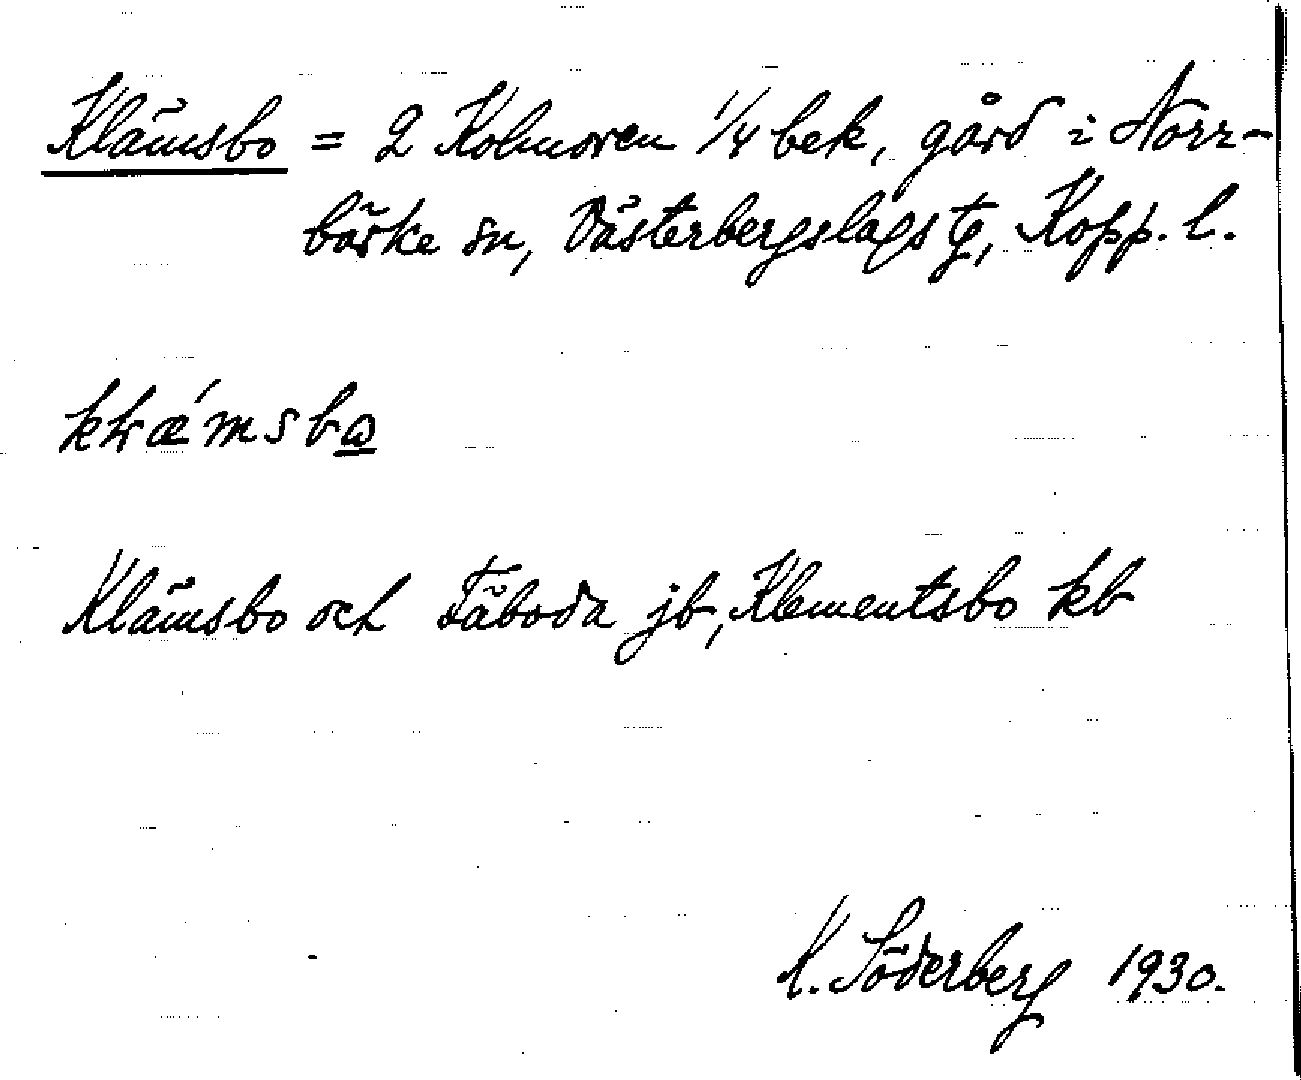 Klämsbo = 2 Kolmoren 1/4 bek, gård i Norr-
bärke sn, Västerbergslags tg, Kopp. l.
Klämsbo och Fäboda jb, Klementsbo kb
K. Söderberg 1930.